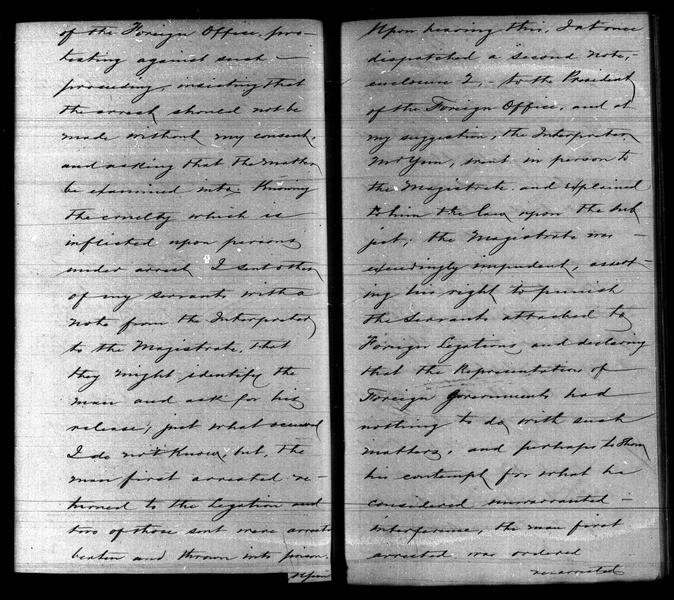 of the Foreign Office, pro-
testing against such —
proceeding, insisting that
the arrest should not be
made without my consent,
and asking that the matter
be examined into. Knowing
the cruelty which is
inflicted upon persons
under arrest I sent others
of my servants with a
note from the Interpreter
to the Magistrate, that
they might identify the
man and ask for his
release; just what occurred
I do not know, but, the
man first arrested re-
turned to the Legation and
two of those sent were arrested
beaten and thrown into prison.
Upon
Upon hearing this, I at once
dispatched a second note,
enclosure 2, to the President
of the Foreign Office, and at
my suggestion, the Interpreter
Mr Yun, went in person to
the Magistrate and explained
to him the law upon the sub
ject; the Magistrate was —
exceedingly impudent, assert-
ing his right to punish
the servants attached to
Foreign Legations and declaring
that the Representatives of
Foreign Governments had
nothing to do with such
matters, and perhaps to show
his contempt for what he
considered unwarranted —
interference, the man first
arrested was ordered
rearrested